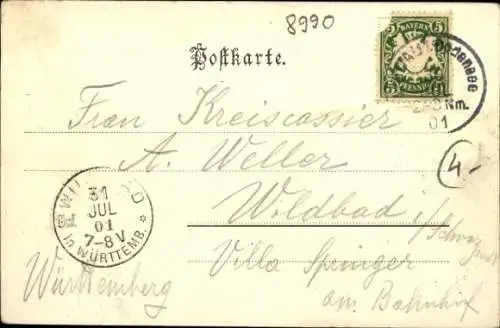 8990
BAYERN
5 5
PFENNIG
Bodensee
Nm.
01
Postkarte.
Frau Kreiscassier
A. Weller
4-
Wildbad
31
JUL
01
7-8V
in WÜRTTEMB.
i/Schwarz
Villa Springer
Württemberg
am Bahnhof